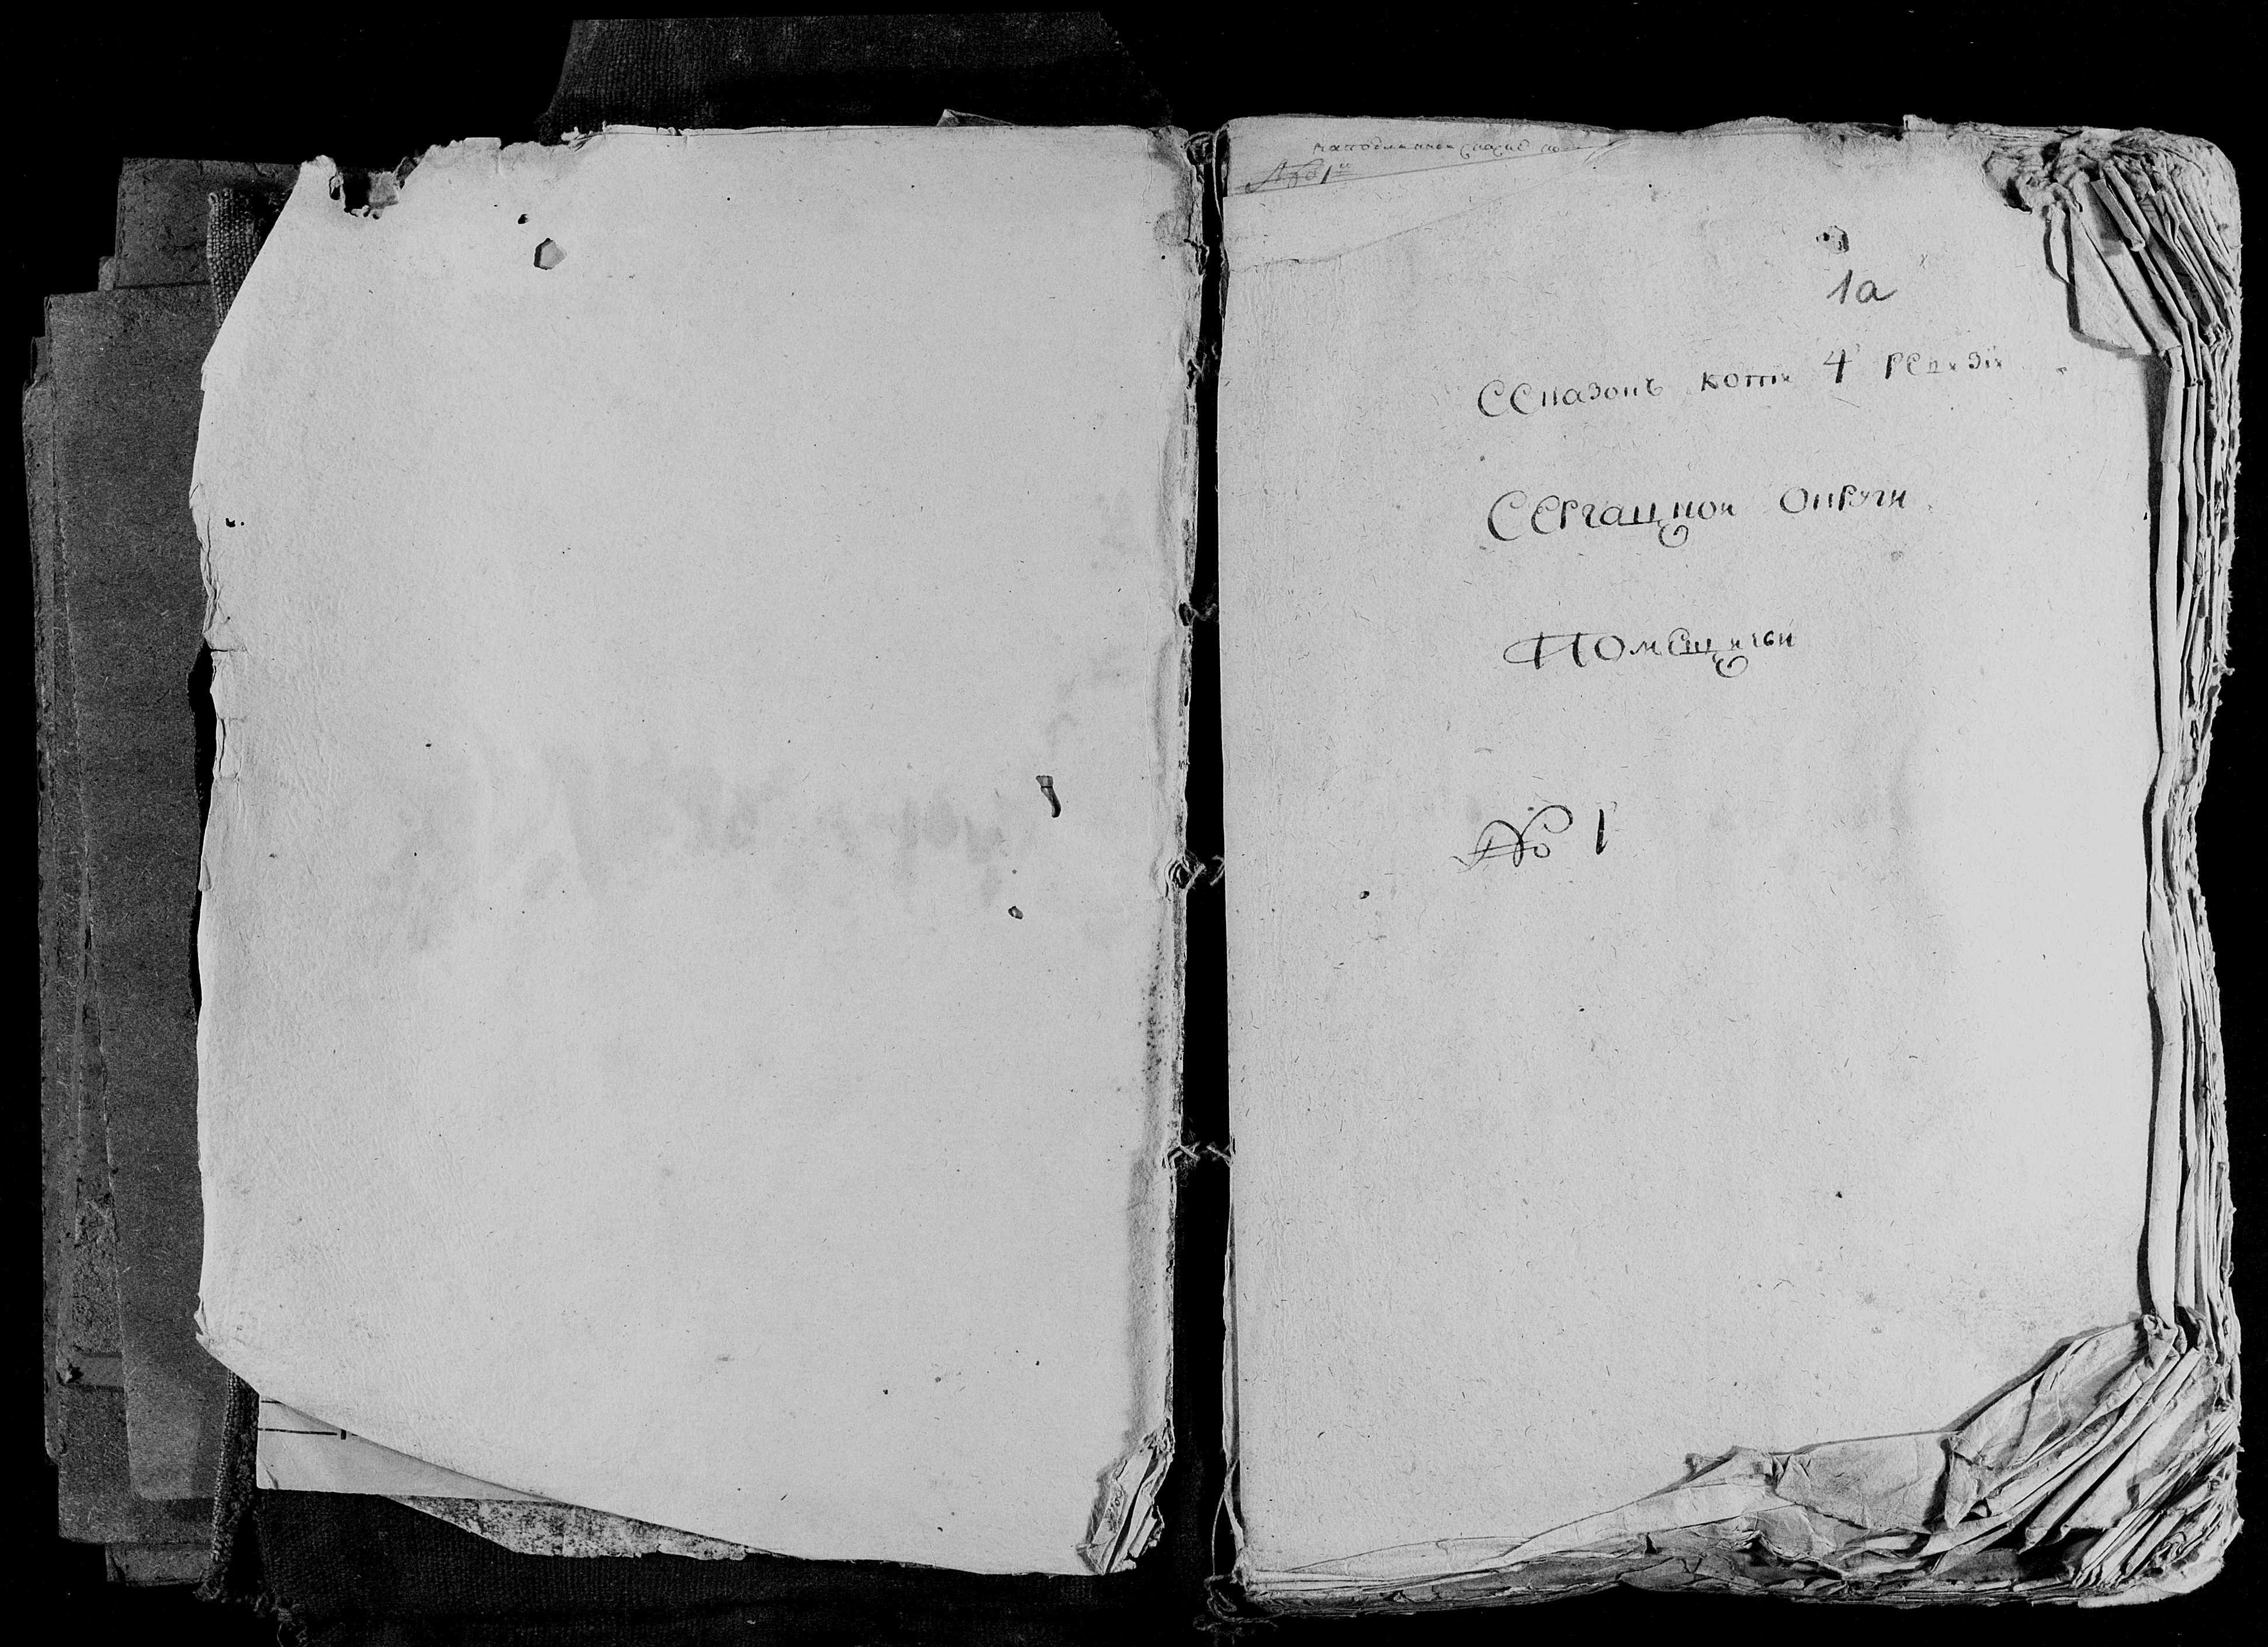 № 1й
1а
Сказокъ копiи 4 ревизiи
Сергацкой округи
Помещичьи
№ 1